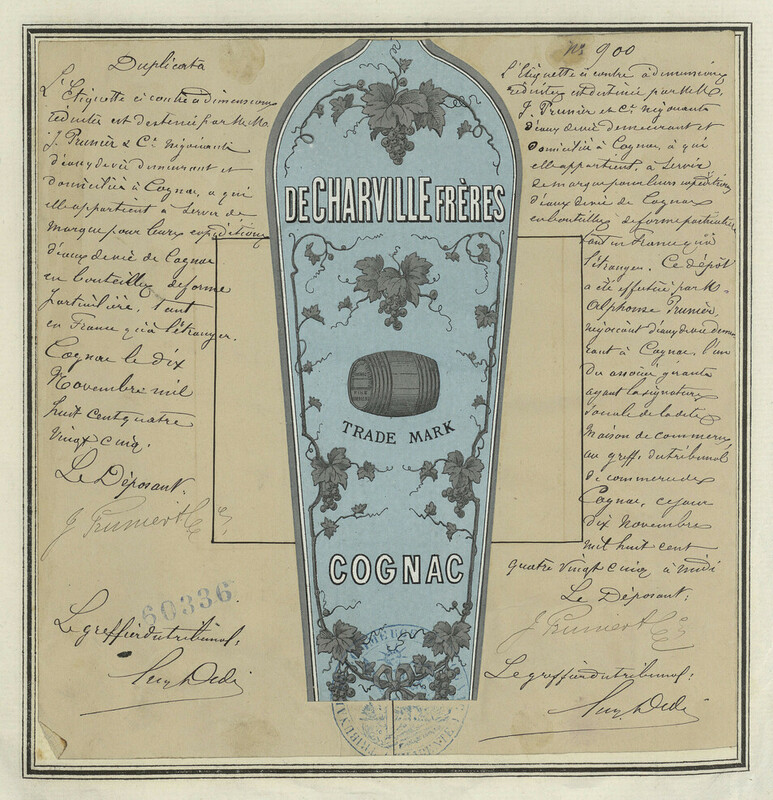 Duplicata
L'Etiquette ci contre à dimensions
réduites est destinée par M.M.
J. Prunier & Cie. négociants
d'eaux de vie demeurant et
domiciliés à Cognac, à qui
elle appartient à servir de
marque pour leurs expéditions
d'eaux de vie de Cognac
en bouteilles de forme
particulière, tant
en France qu'à l'étranger.
Cognac le dix
Novembre mil
huit cent quatre
vingt cinq.
Le Déposant.
J Prunier & Cie
60336
Le greffier du tribunal,
DE CHARVILLE FRÈRES
TRADE MARK
COGNAC
No 900
L'Etiquette ci contre à dimensions
réduites est destinée par M.M.
J. Prunier et Cie. négociants
d'eaux de vie demeurant et
domiciliés à Cognac, à qui
elle appartient, à servir
de marque pour leurs expéditions
d'eaux de vie de Cognac
en bouteilles de forme particulière
tant en France qu'à
l'étranger. Ce dépôt
a été effectué par M.
Alphonse Prunier,
négociant d'eaux de vie demeu
rant à Cognac, l'un
des associés gérants
ayant la signature
sociale de la dite
maison de commerce,
au greffe du tribunal
de commerce de
Cognac, ce jour
dix Novembre
mil huit cent
quatre vingt cinq à midi
Le Déposant:
J Prunier & Cie
Le greffier du tribunal: